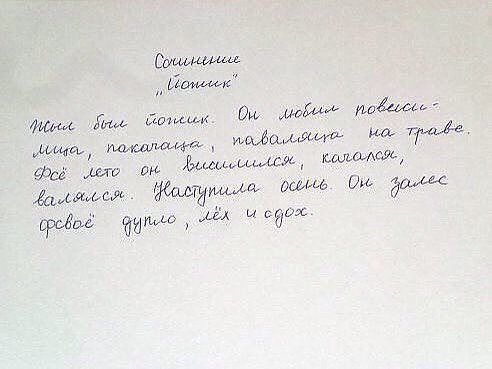 Сочинение
„Йожик“
Жыл был йожик. Он любил повиси-
мица, пакачаца, паваляца на траве.
Фсё лето он висилился, качался,
валялся. Наступила осень. Он залес
фсваё дупло, лёх и сдох.